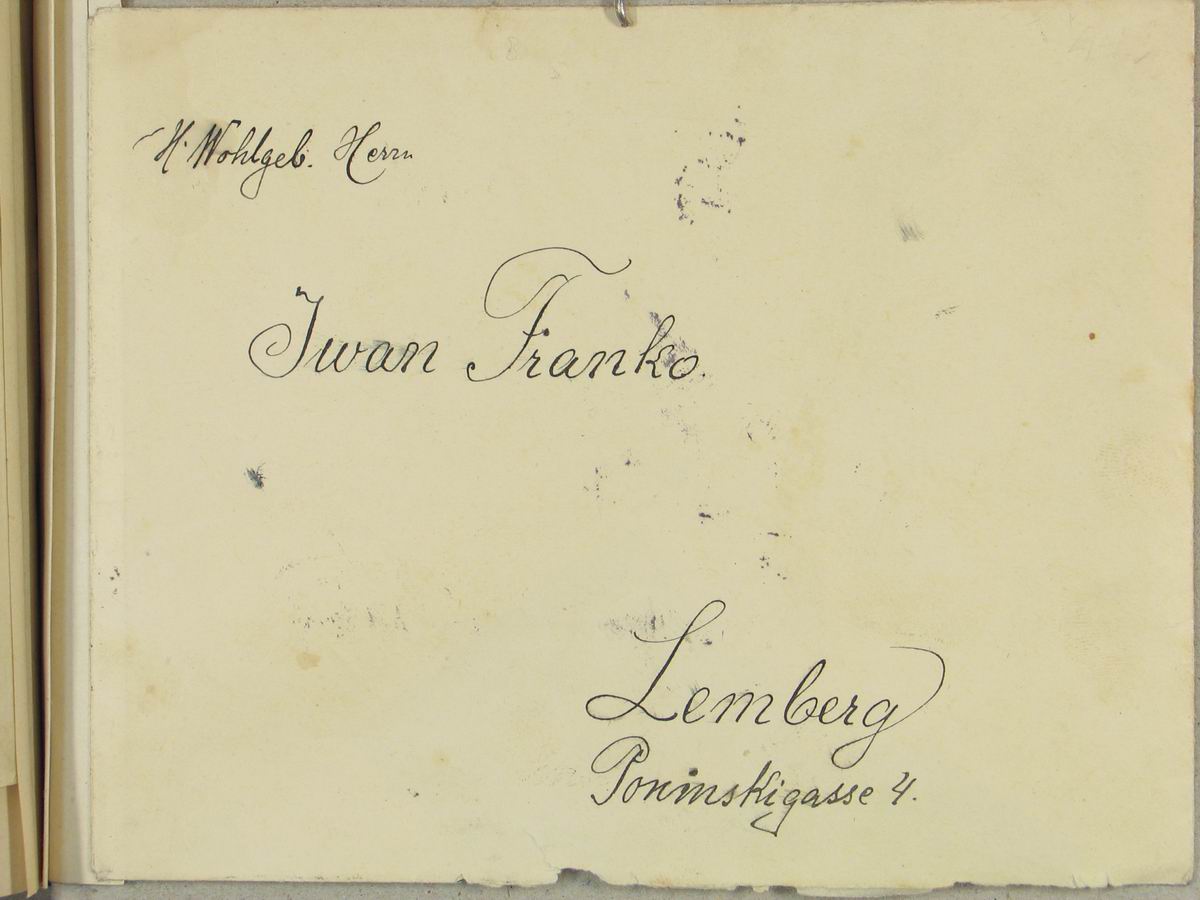 H. Wohlgeb. Herrn
Iwan Franko.
Lemberg
Poninskigasse 4.